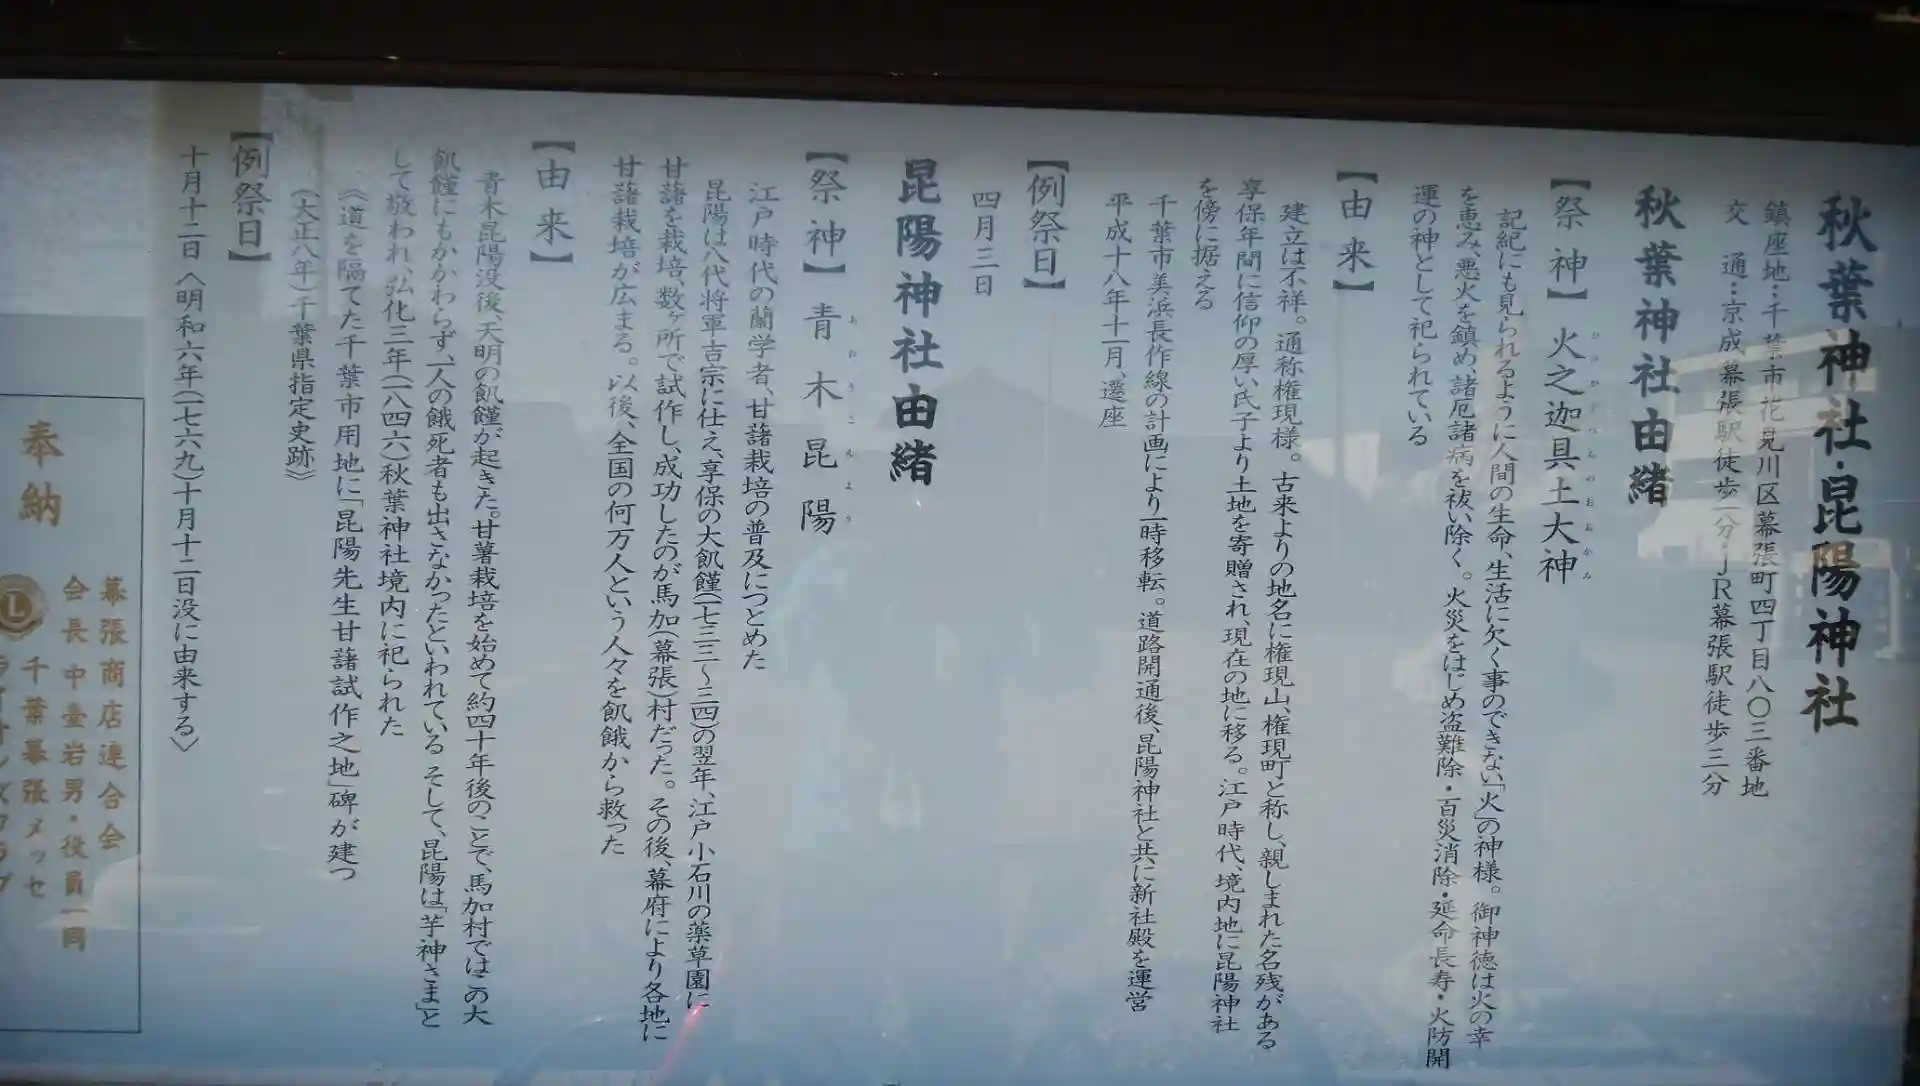 秋葉神社・昆陽神社
鎮座地：千葉市花見川区幕張町四丁目八〇三番地
交　通：京成幕張駅徒歩一分・JR幕張駅徒歩三分
秋葉神社由緒
【祭　神】火之迦具土大神
ひのかぐつちのおおかみ
記紀にも見られるように人間の生命、生活に欠く事のできない「火」の神様。御神徳は火の幸
を恵み、悪火を鎮め、諸厄諸病を祓い除く。火災をはじめ盗難除・百災消除・延命長寿・火防開
運の神として祀られている
【由　来】
建立は不祥。通称権現様。古来よりの地名に権現山、権現町と称し、親しまれた名残がある
享保年間に信仰の厚い氏子より土地を寄贈され、現在の地に移る。江戸時代、境内地に昆陽神社
を傍に据える
千葉市美浜長作線の計画により一時移転。道路開通後、昆陽神社と共に新社殿を運営
平成十八年十一月、遷座
【例祭日】
四月三日
昆陽神社由緒
【祭　神】青木昆陽
あおきこんよう
江戸時代の蘭学者、甘藷栽培の普及につとめた
昆陽は八代将軍吉宗に仕え、享保の大飢饉（一七三三～三四）の翌年、江戸小石川の薬草園に
甘藷を栽培、数ヶ所で試作し、成功したのが馬加（幕張）村だった。その後、幕府により各地に
甘藷栽培が広まる。以後、全国の何万人という人々を飢餓から救った
【由　来】
青木昆陽没後、天明の飢饉が起きた。甘薯栽培を始めて約四十年後のことで、馬加村ではこの大
飢饉にもかかわらず、一人の餓死者も出さなかったといわれている そして、昆陽は「芋神さま」と
して敬われ、弘化三年（一八四六）秋葉神社境内に祀られた
《道を隔てた千葉市用地に「昆陽先生甘藷試作之地」碑が建つ
（大正八年）千葉県指定史跡》
【例祭日】
十月十二日〈明和六年（一七六九）十月十二日没に由来する〉
奉納
幕張商店連合会
会長 中臺岩男・役員一同
千葉幕張メッセ
ライオンズクラブ